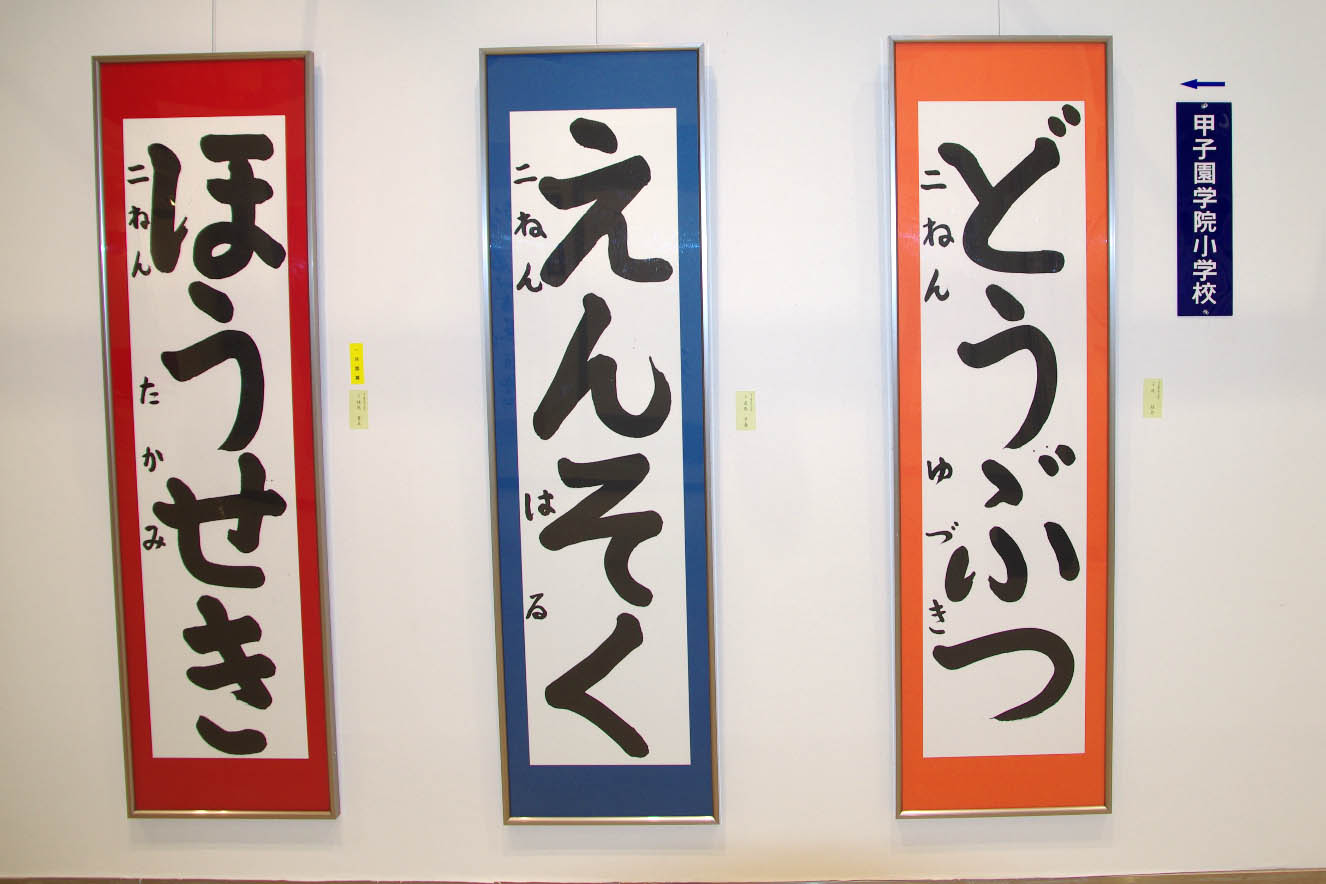 甲子園学院小学校
どうぶつ
二ねん ゆづき
えんそく
二ねん はる
ほうせき
二ねん たかみ